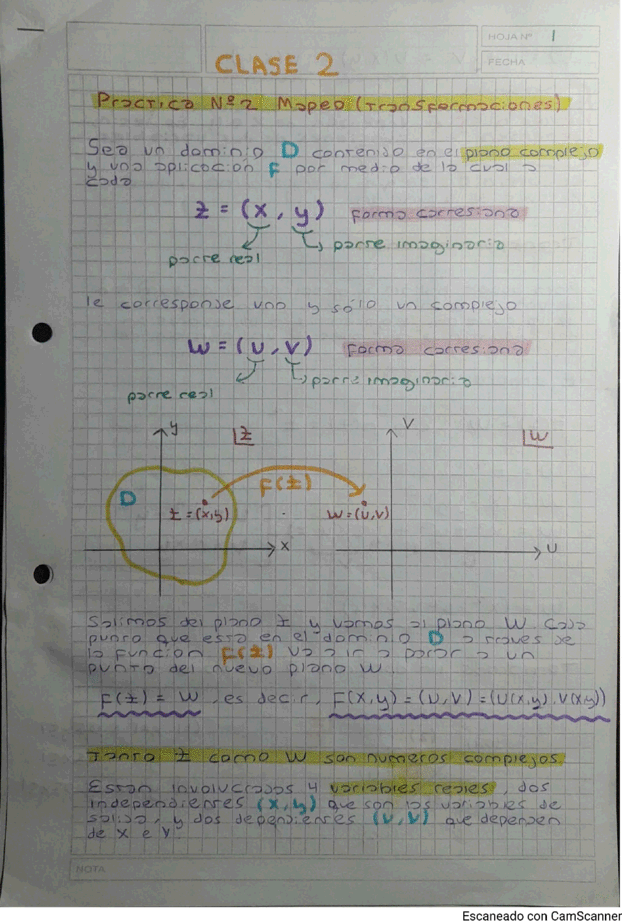 HOJA Nº 1
FECHA
CLASE 2
Practica Nº2 Mapeo (Transformaciones)
Sea un dominio D contenido en el plano complejo
y una aplicación F por medio de la cual a
cada
z = (x, y) forma cartesiana
parte real
parte imaginaria
le corresponde uno y sólo un complejo
W = (U, V) forma cartesiana
parte real
parte imaginaria
y
z
V
W
D
F(z)
z=(x,y)
W=(U,V)
X
U
Salimos del plano z y vamos al plano W. Cada
punto que esta en el dominio D a traves de
la funcion F(z) va a ir a parar a un
punto del nuevo plano W.
F(z) = W, es decir, F(x,y) = (U,V) = (U(x,y), V(x,y))
Tanto z como W son numeros complejos.
Estan involucradas 4 variables reales, dos
independientes (x,y) que son las variables de
salida, y dos dependientes (U,V) que dependen
de x e y.
NOTA
Escaneado con CamScanner